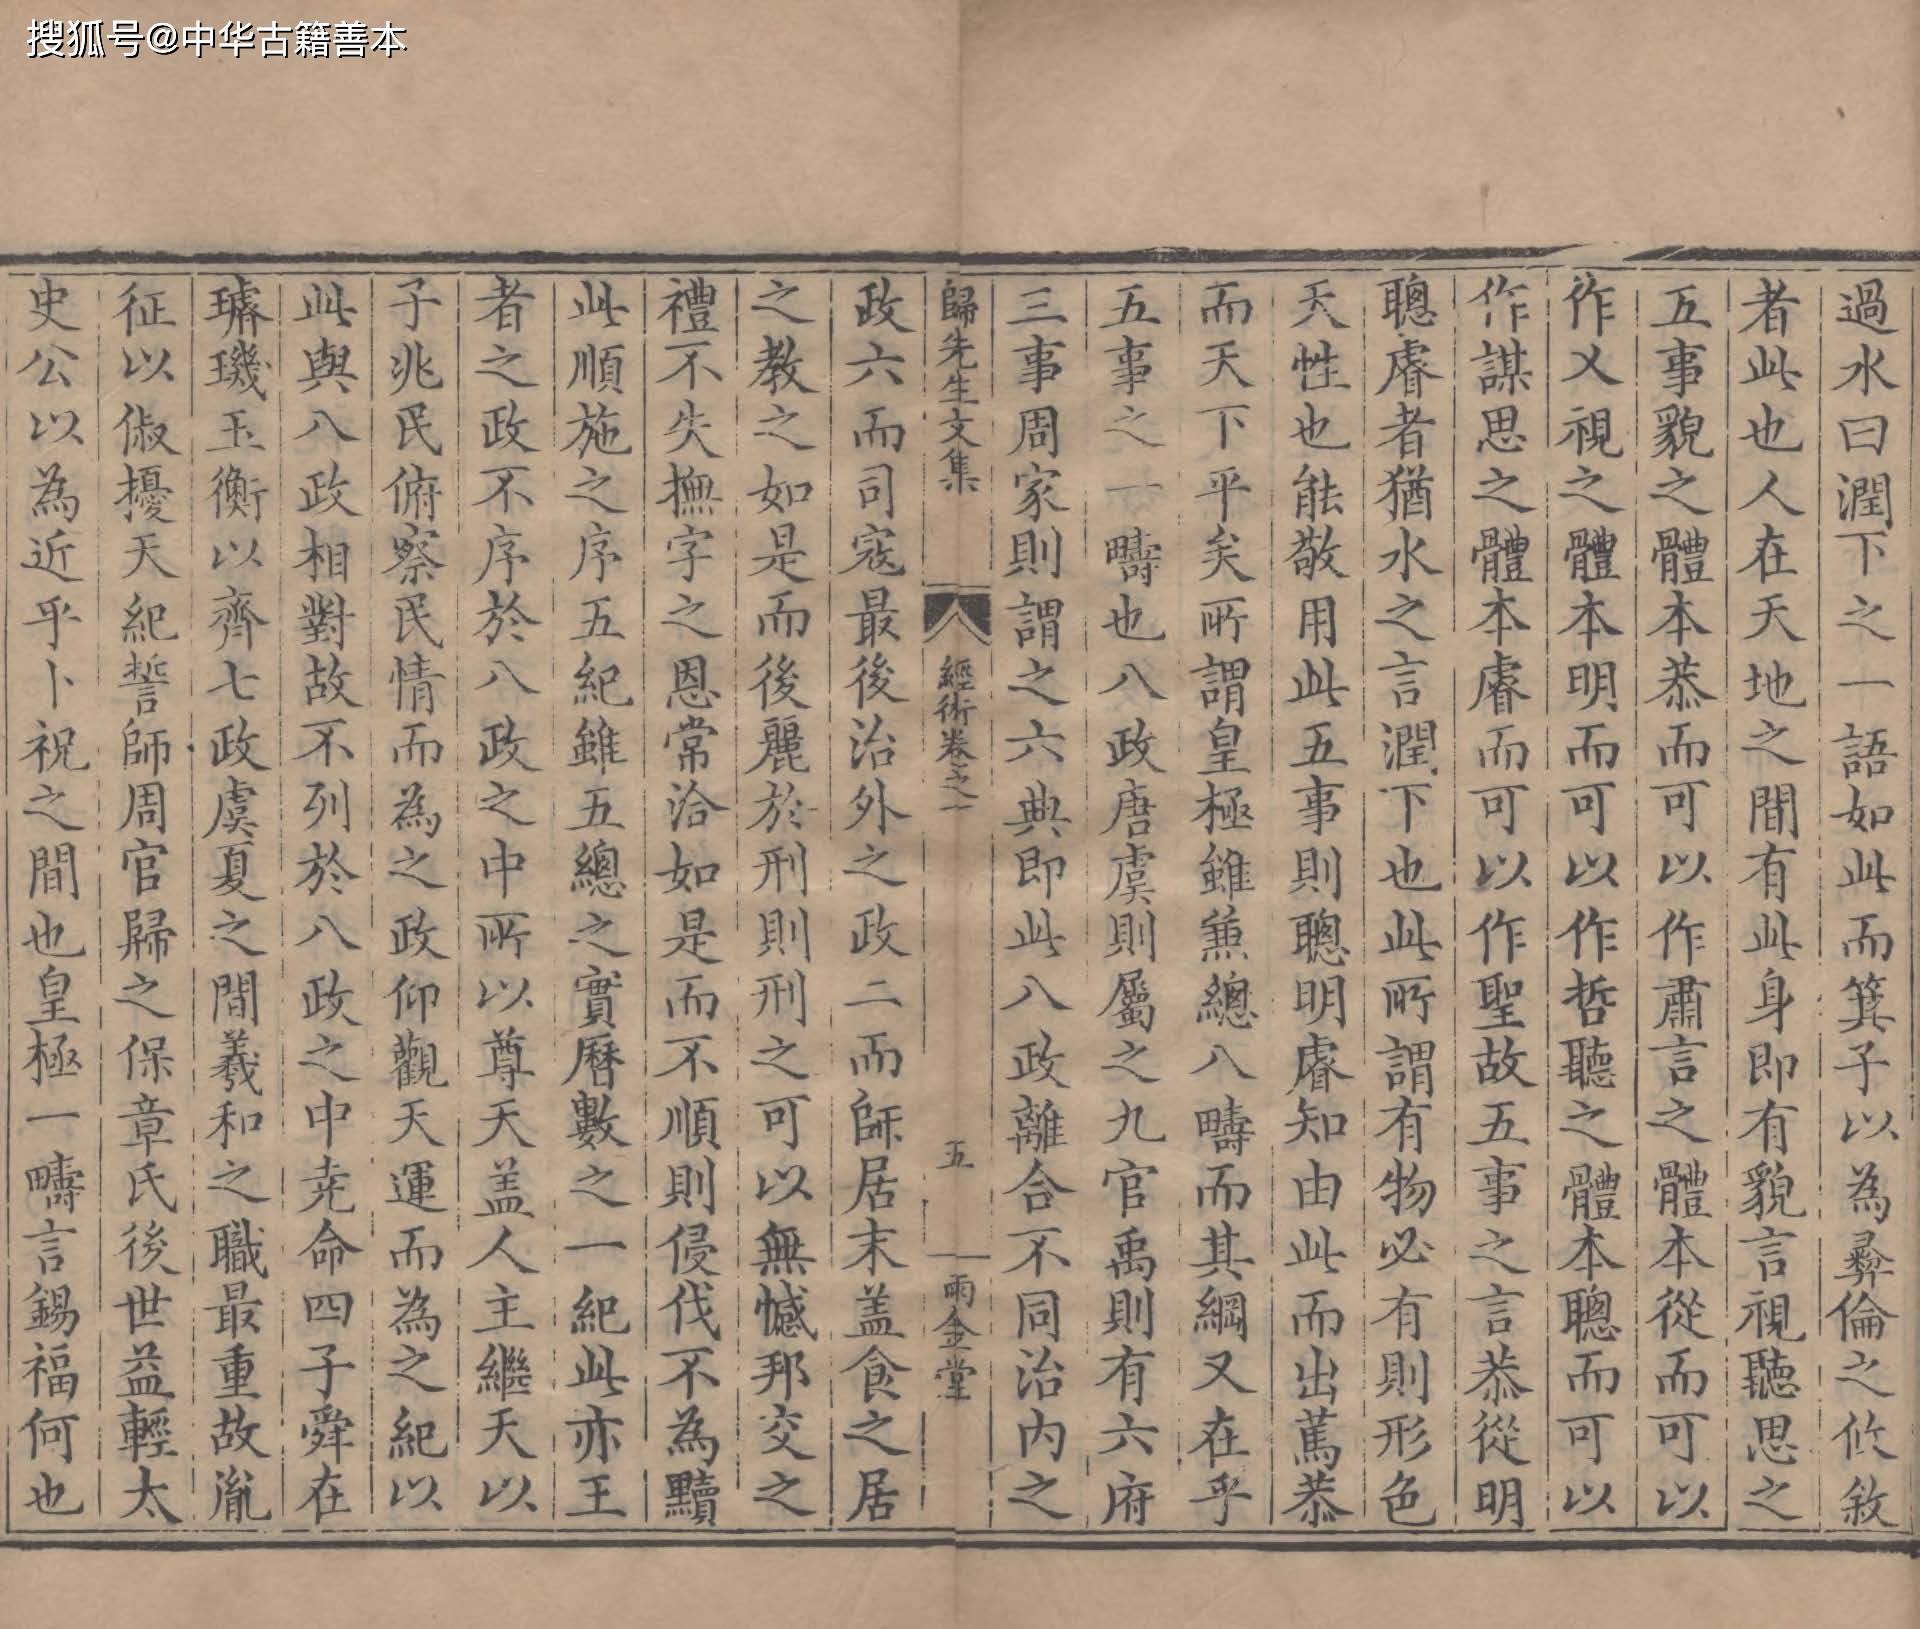 搜狐号@中华古籍善本
過水曰潤下之一語如此而箕子以為彞倫之攸敘
者此也人在天地之間有此身即有貌言視聽思之
五事貌之體本恭而可以作肅言之體本從而可以
作乂視之體本明而可以作哲聽之體本聰而可以
作謀思之體本睿而可以作聖故五事之言恭從明
聰睿者猶水之言潤下也此所謂有物必有則形色
天性也能敬用此五事則聰明睿知由此而出篤恭
而天下平矣所謂皇極雖兼總八疇而其綱又在乎
五事之一疇也八政唐虞則屬之九官禹則有六府
三事周家則謂之六典即此八政離合不同治内之
歸先生文集
經術卷之一
五
雨金堂
政六而司寇最後治外之政二而師居末盖食之居
之教之如是而後麗於刑則刑之可以無憾邦交之
禮不失撫字之恩常洽如是而不順則侵伐不為黷
此順施之序五紀雖五總之實曆數之一紀此亦王
者之政不序於八政之中所以尊天盖人主繼天以
子兆民俯察民情而為之政仰觀天運而為之紀以
此與八政相對故不列於八政之中尭命四子舜在
璿璣玉衡以齊七政虞夏之間羲和之職最重故胤
征以俶擾天紀誓師周官歸之保章氏後世益輕太
史公以為近乎卜祝之間也皇極一疇言錫福何也